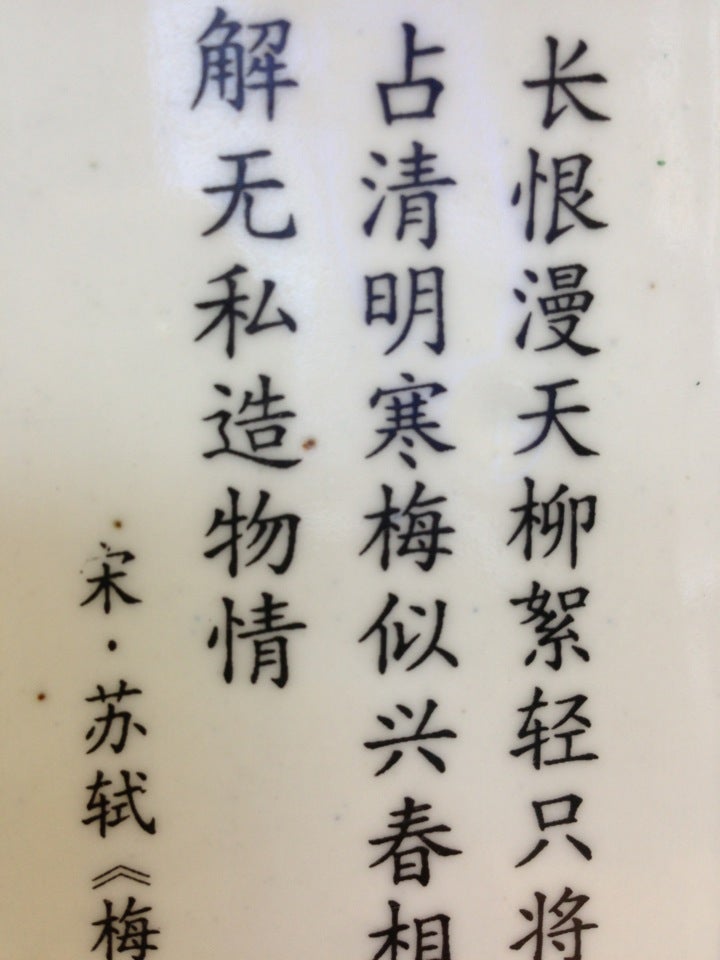 长恨漫天柳絮轻只将
占清明寒梅似兴春相
解无私造物情
宋·苏轼《梅